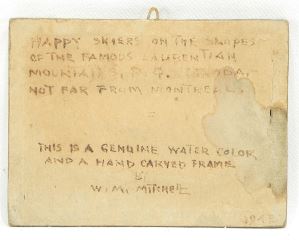 HAPPY SKIERS ON THE SLOPES
OF THE FAMOUS LAURENTIAN
MOUNTAINS, P.Q. CANADA.
NOT FAR FROM MONTREAL.
THIS IS A GENUINE WATER COLOR
AND A HAND CARVED FRAME
BY
W. M. MITCHELL